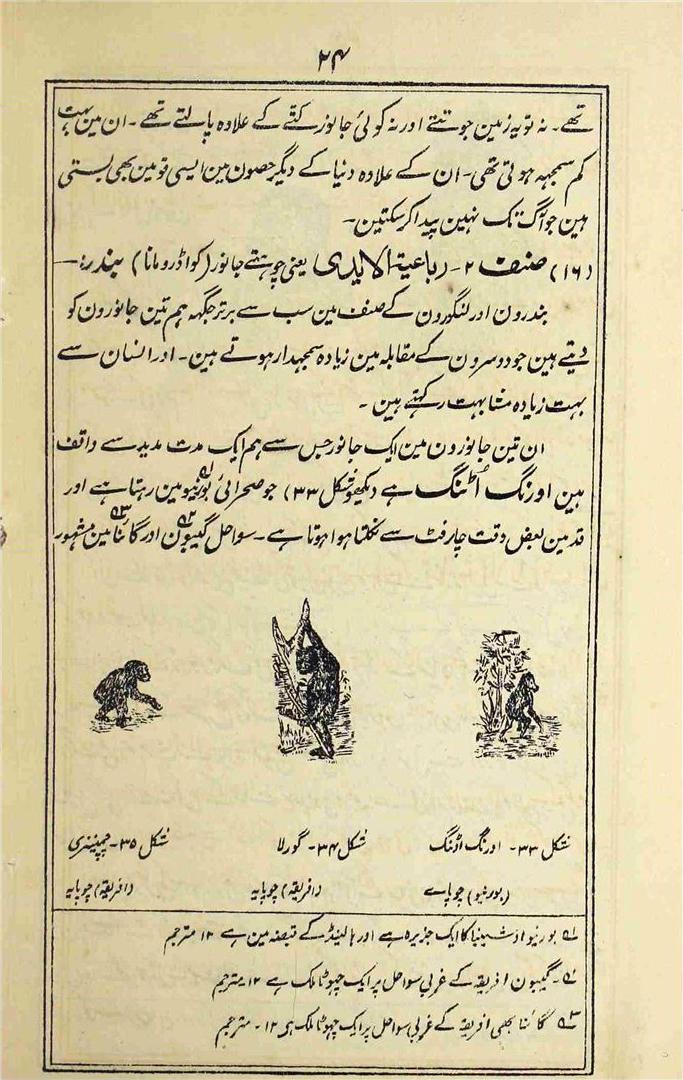 ۲۴
تھے۔ نہ تو یہ زمین جوتتے اور نہ کوئی جانور کتے کے علاوہ پالتے تھے۔ ان مین بہت
کم سمجہہ ہوتی تھی۔ ان کے علاوہ دنیا کے دیگر حصون مین ایسی قومین بھی بستی
ہین جو آگ تک نہین پیدا کرسکتین۔
(۱۶) صنف ۲۔ رباعیۃ الایدی یعنی چوہتے جانور (کواڈرومانا) بندر:۔
بندرون اور لنگورون کے صنف مین سب سے برتر جگہہ ہم تین جانورون کو
دیتے ہین جو دوسرون کے مقابلہ مین زیادہ سمجہدار ہوتے ہین۔ اور انسان سے
بہت زیادہ مشابہت رکہتے ہین۔
ان تین جانورون مین ایک جانور جس سے ہم ایک مدت مدید سے واقف
ہین اورنگ اُٹنگ ہے (دیکھو شکل ۳۳) جو صحرائی بورنیو۱؎ مین رہتا ہے اور
قد مین بعض وقت چار فٹ سے نکلتا ہوا ہوتا ہے۔ سواحل گیبون۲؎ اور گائنا۳؎ مین مشہور
شکل ۳۳۔ اورنگ اٹنگ
شکل ۳۴۔ گورلا
شکل ۳۵۔ چمپینزی
(بورنیو) چوپاے
(افریقہ) چوپایہ
(افریقہ) چوپایہ
۱؎ بورنیو اوشینیا کا ایک جزیرہ ہے اور ہالینڈ کے قبضہ مین ہے ۱۲ مترجم
۲؎۔ گیبون افریقہ کے غربی سواحل پر ایک چہوٹا ملک ہے ۱۲ مترجم
۳؎ گائنا بھی افریقہ کے غربی سواحل پر ایک چہوٹا ملک ہی ۱۲۔ مترجم